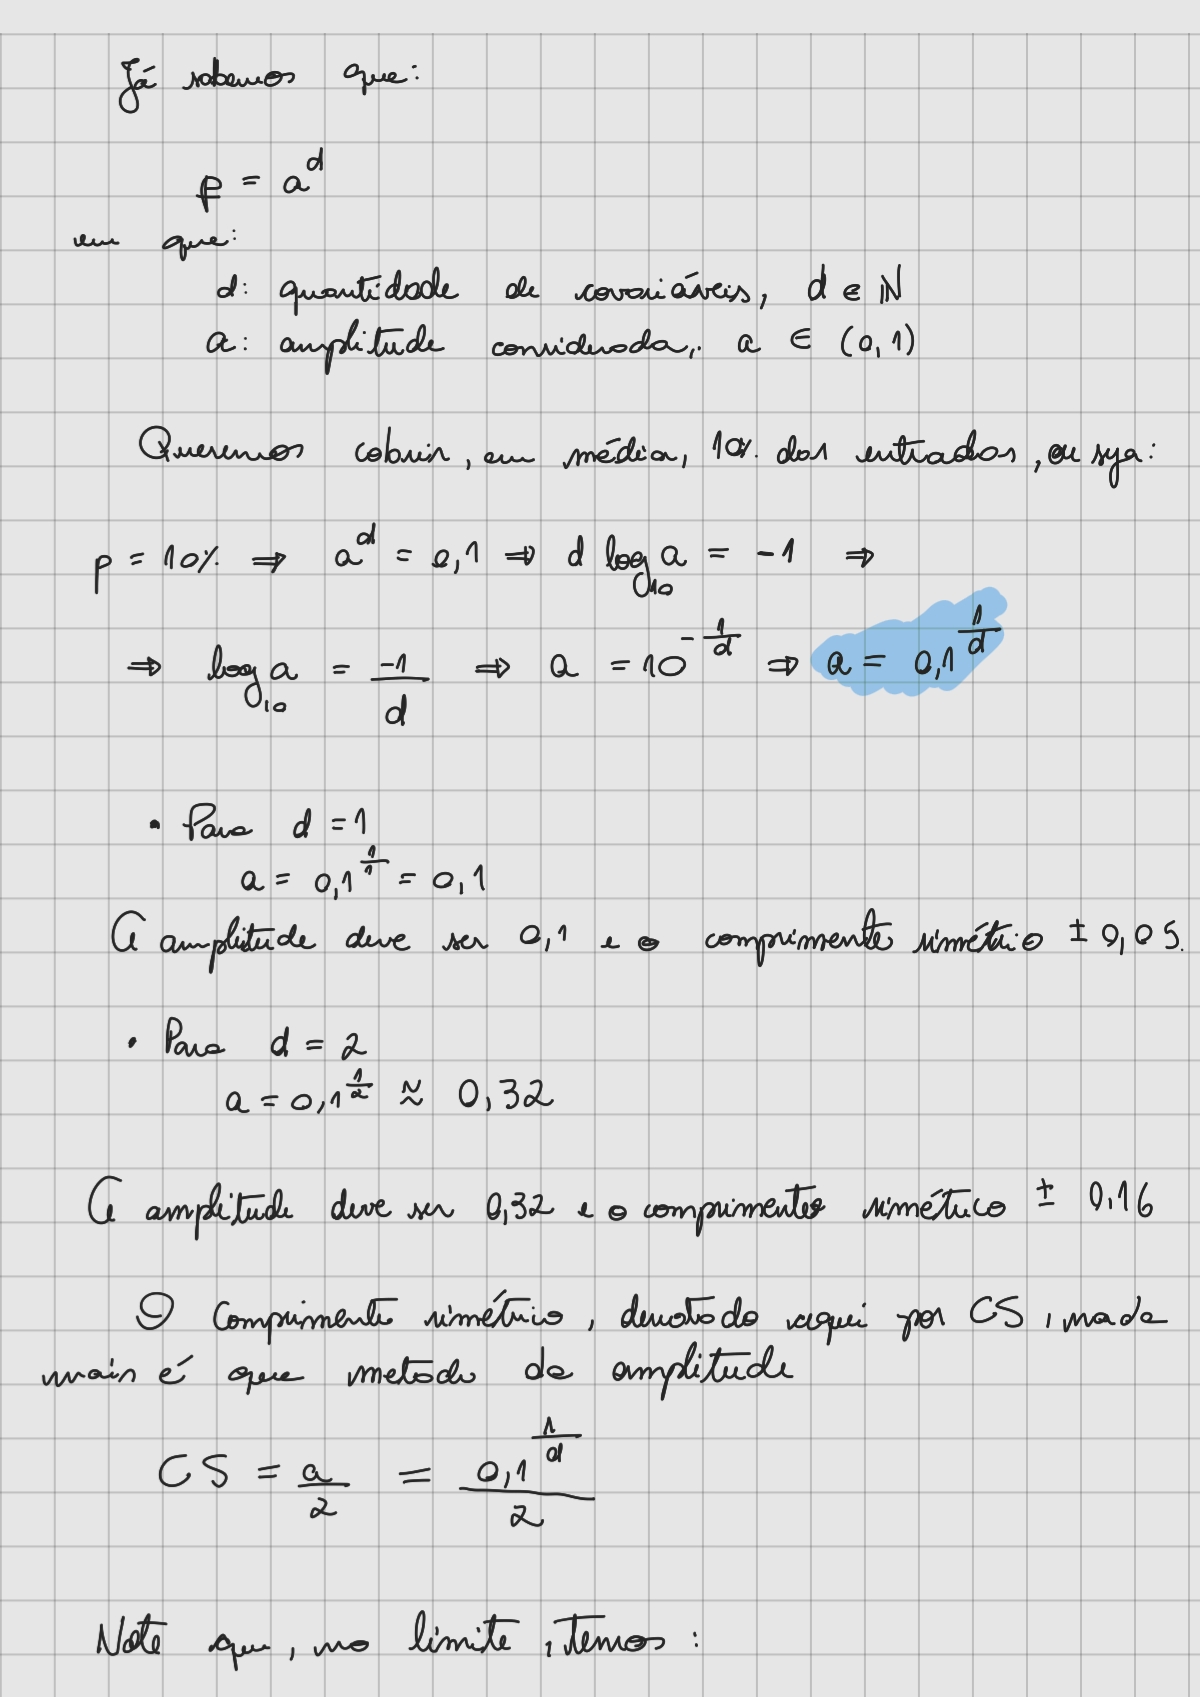 Já sabemos que:
p = a^d
em que:
d: quantidade de covariáveis, d ∈ N
a: amplitude considerada,. a ∈ (0,1)
Queremos cobrir, em média, 10% das entradas, ou seja:
p = 10% ⇒ a^d = 0,1 ⇒ d log₁₀ a = -1 ⇒
⇒ log₁₀ a = -1/d ⇒ a = 10^(-1/d) ⇒ a = 0,1^(1/d)
• Para d = 1
a = 0,1^(1/1) = 0,1
A amplitude deve ser 0,1 e o comprimento simétrico ± 0,05.
• Para d = 2
a = 0,1^(1/2) ≈ 0,32
A amplitude deve ser 0,32 e o comprimento simétrico ± 0,16
O comprimento simétrico, denotado aqui por CS, nada
mais é que metade da amplitude
CS = a/2 = 0,1^(1/d)/2
Note que, no limite, temos: